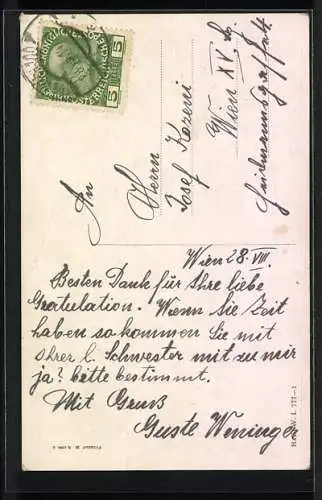 An
Herrn
Josef Kozeni
Wien XV
Wien 28. VIII.
Besten Dank für Ihre liebe
Gratulation. Wenn Sie Zeit
haben so kommen Sie mit
Ihrer l. Schwester mit zu mir
ja? bitte bestimmt.
Mit Gruß
Guste Weninger
5 5